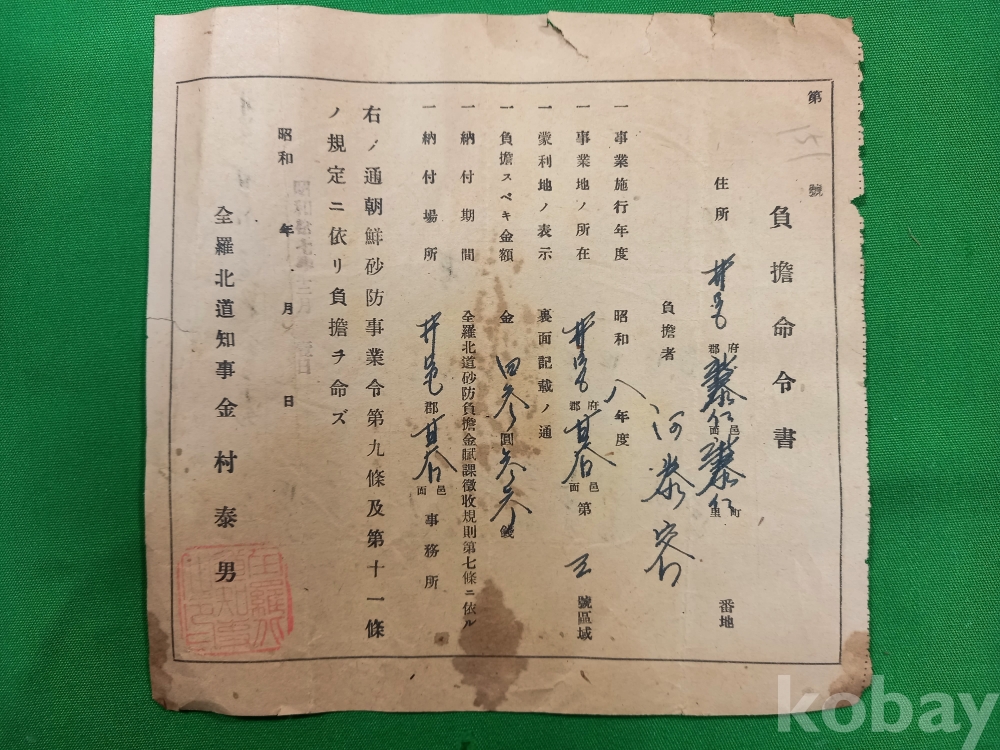 第 號
負擔命令書
住所 井邑 府郡 泰仁 邑面 泰仁 町里 番地
負擔者 河泰
一 事業施行年度 昭和 八 年度
一 事業地ノ所在 井邑 府郡 邑面 第 三 號區域
一 蒙利地ノ表示 裏面記載ノ通
一 負擔スベキ金額 金 四參 圓 參參 錢
一 納付期間 全羅北道砂防負擔金賦課徵收規則第七條ニ依ル
一 納付場所 井邑 郡 邑面 事務所
右ノ通朝鮮砂防事業令第九條及第十一條
ノ規定ニ依リ負擔ヲ命ズ
昭和 年 月 日
昭和拾七年
全羅北道知事金村泰男
kobay